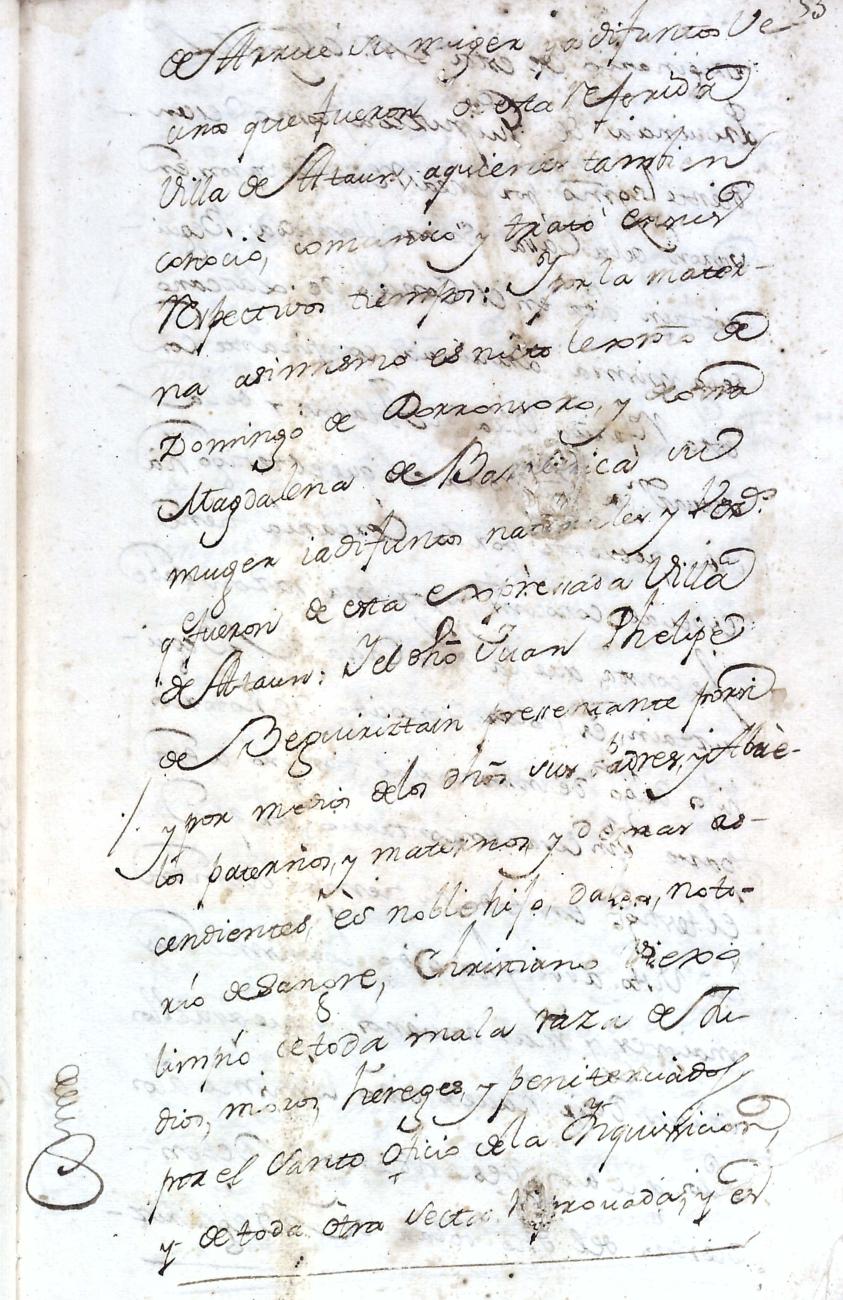 33
de Arrue su muger ya difuntos Ve
cinos que fueron de esta referida
Villa de Ataun, aquienes tambien
conoció, comunicó y trató en sus
respectivos tiempos: Y por la mater-
na asimismo es nieto lexmo de
Domingo de Dorronsoro, y
Magdalena de su
muger ia difuntos naturales y Vezs.
q fueron de esta expressada Villa
de Ataun: Y el dho Juan Phelipe
de Beguiristain pressentante por si
y por medio delos dhos sus Padres, y Abue-
los paternos, y maternos, y demas as-
cendientes, es noble hijo, dalgo, noto-
rio de Sangre, Christiano Viexo,
limpio de toda mala raza de Ju-
dios, moros, hereges, y penitenciados
por el Santo Oficio dela Ynquissicion,
y de toda otra secta reprouada, y es